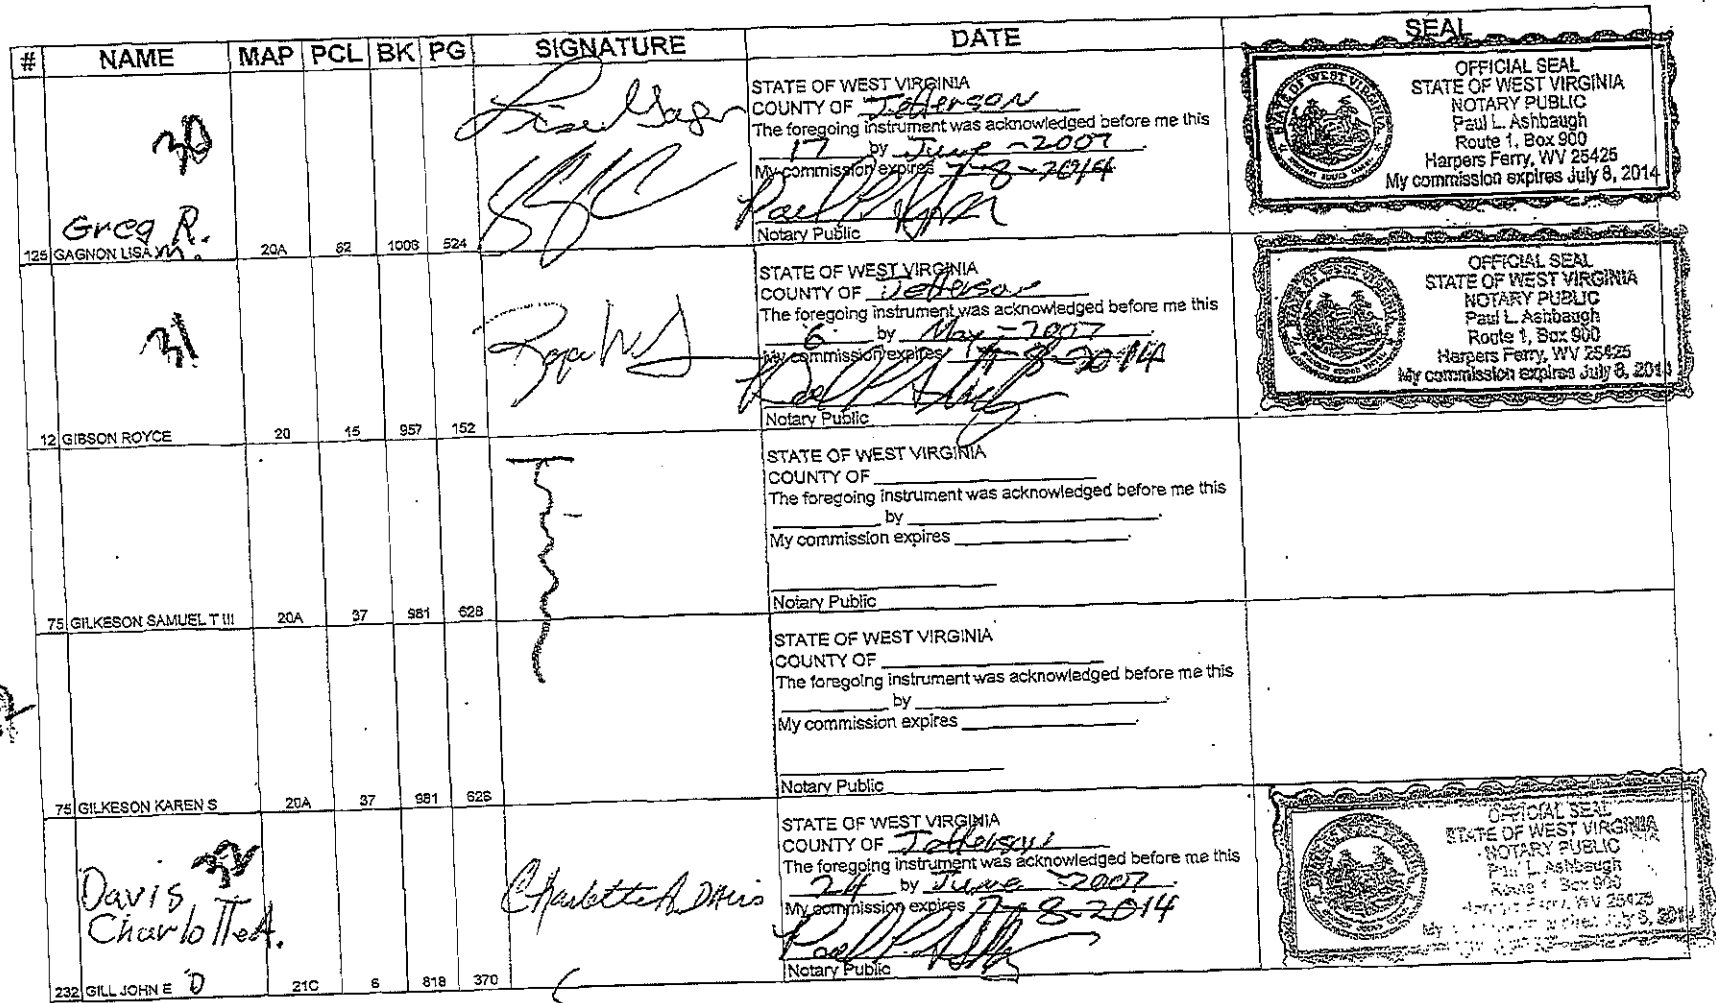 # NAME MAP PCL BK PG SIGNATURE DATE SEAL
30
Greg R.
125 GAGNON LISA M. 20A 62 1008 524
STATE OF WEST VIRGINIA
COUNTY OF Jefferson
The foregoing instrument was acknowledged before me this
17 by June - 2007
My commission expires 7-8-2014
Notary Public
OFFICIAL SEAL
STATE OF WEST VIRGINIA
NOTARY PUBLIC
Paul L. Ashbaugh
Route 1, Box 900
Harpers Ferry, WV 25425
My commission expires July 8, 2014
31
12 GIBSON ROYCE 20 15 957 152
STATE OF WEST VIRGINIA
COUNTY OF Jefferson
The foregoing instrument was acknowledged before me this
6 by May - 2007
My commission expires 7-8-2014
Notary Public
OFFICIAL SEAL
STATE OF WEST VIRGINIA
NOTARY PUBLIC
Paul L. Ashbaugh
Route 1, Box 900
Harpers Ferry, WV 25425
My commission expires July 8, 2014
75 GILKESON SAMUEL T III 20A 37 981 628
STATE OF WEST VIRGINIA
COUNTY OF
The foregoing instrument was acknowledged before me this
by
My commission expires
Notary Public
75 GILKESON KAREN S 20A 37 981 628
STATE OF WEST VIRGINIA
COUNTY OF
The foregoing instrument was acknowledged before me this
by
My commission expires
Notary Public
Davis
Charlotte A.
232 GILL JOHN E D 21C 6 818 370
Charlotte A Davis
STATE OF WEST VIRGINIA
COUNTY OF Jefferson
The foregoing instrument was acknowledged before me this
24 by June - 2007
My commission expires 7-8-2014
Notary Public
OFFICIAL SEAL
STATE OF WEST VIRGINIA
NOTARY PUBLIC
Paul L. Ashbaugh
Route 1 Box 900
WV 25425
My July 8, 2014